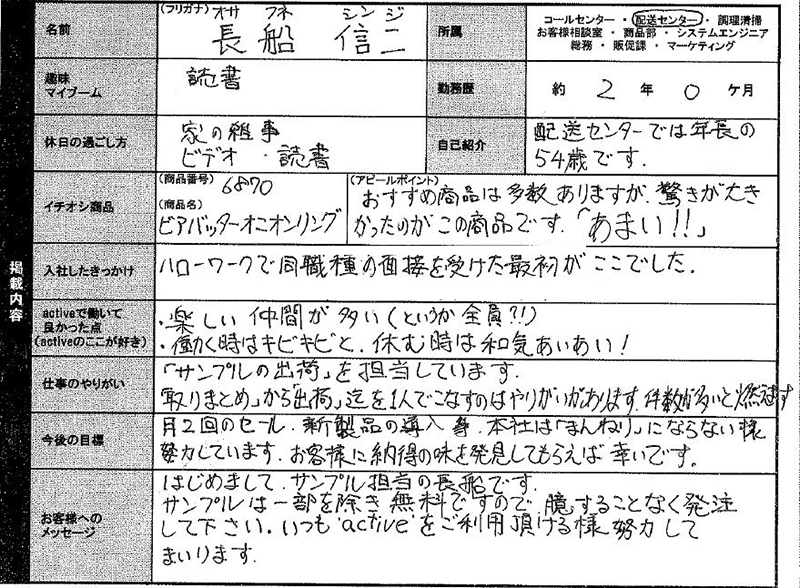 掲載内容
名前
(フリガナ) オサ フネ シンジ
長船 信二
所属
コールセンター・配送センター・調理清掃
お客様相談室・商品部・システムエンジニア
総務・販促課・マーケティング
趣味
マイブーム
読書
勤務歴
約 2 年 0 ケ月
休日の過ごし方
家の雑事
ビデオ・読書
自己紹介
配送センターでは年長の
54歳です.
イチオシ商品
(商品番号) 6870
(商品名)
ビアバッターオニオンリング
(アピールポイント)
おすすめ商品は多数ありますが、驚きが大き
かったのがこの商品です.「あまい!!」
入社したきっかけ
ハローワークで同職種の面接を受けた最初がここでした.
activeで働いて
良かった点
(activeのここが好き)
・楽しい仲間が多い(というか全員?!)
・働く時はキビキビと、休む時は和気あいあい!
仕事のやりがい
「サンプルの出荷」を担当しています.
「取りまとめ」から「出荷」迄を1人でこなすのはやりがいがあります.件数が多いと燃えます
今後の目標
月2回のセール.新製品の導入等.本社は「まんねり」にならない様
努力しています.お客様に納得の味を発見してもらえば幸いです.
お客様への
メッセージ
はじめまして、サンプル担当の長船です.
サンプルは一部を除き無料ですので、臆することなく発注
して下さい.いつも'active'をご利用頂ける様努力して
まいります.